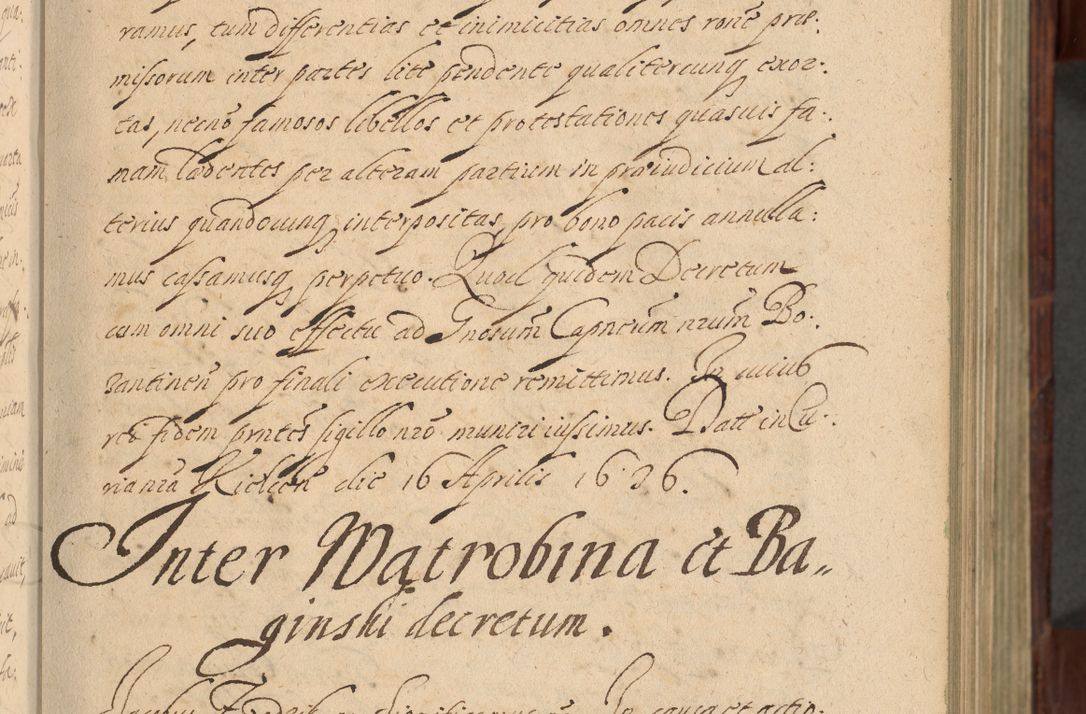 ramus, tum differentias et inimicitias omnes rone̅ prae:
missorum inter partes lite pendente qualitercunq exor:
tas, necno̅ famosos libellos et protestationes quasuis fa:
mam laedentes per alteram partium in praeiudicium al:
terius quandocunq interpositas, pro bono pacis annulla:
mus cassamusq perpetuo. Quod quidem Decretum
cum omni suo effectu ad Gnosum̅ Capneum̅ nrum̅ Bo:
zantinen̅ pro finali executione remittimus. In cuius
rei fidem prnte̅s sigillo nro̅ muniri iussimus. Datt in Cu:
ria nra̅ Kielcen̅ die 16 Aprilis 1636.
Inter Watrobina et Ba„
ginski decretum.
In causa et actio: